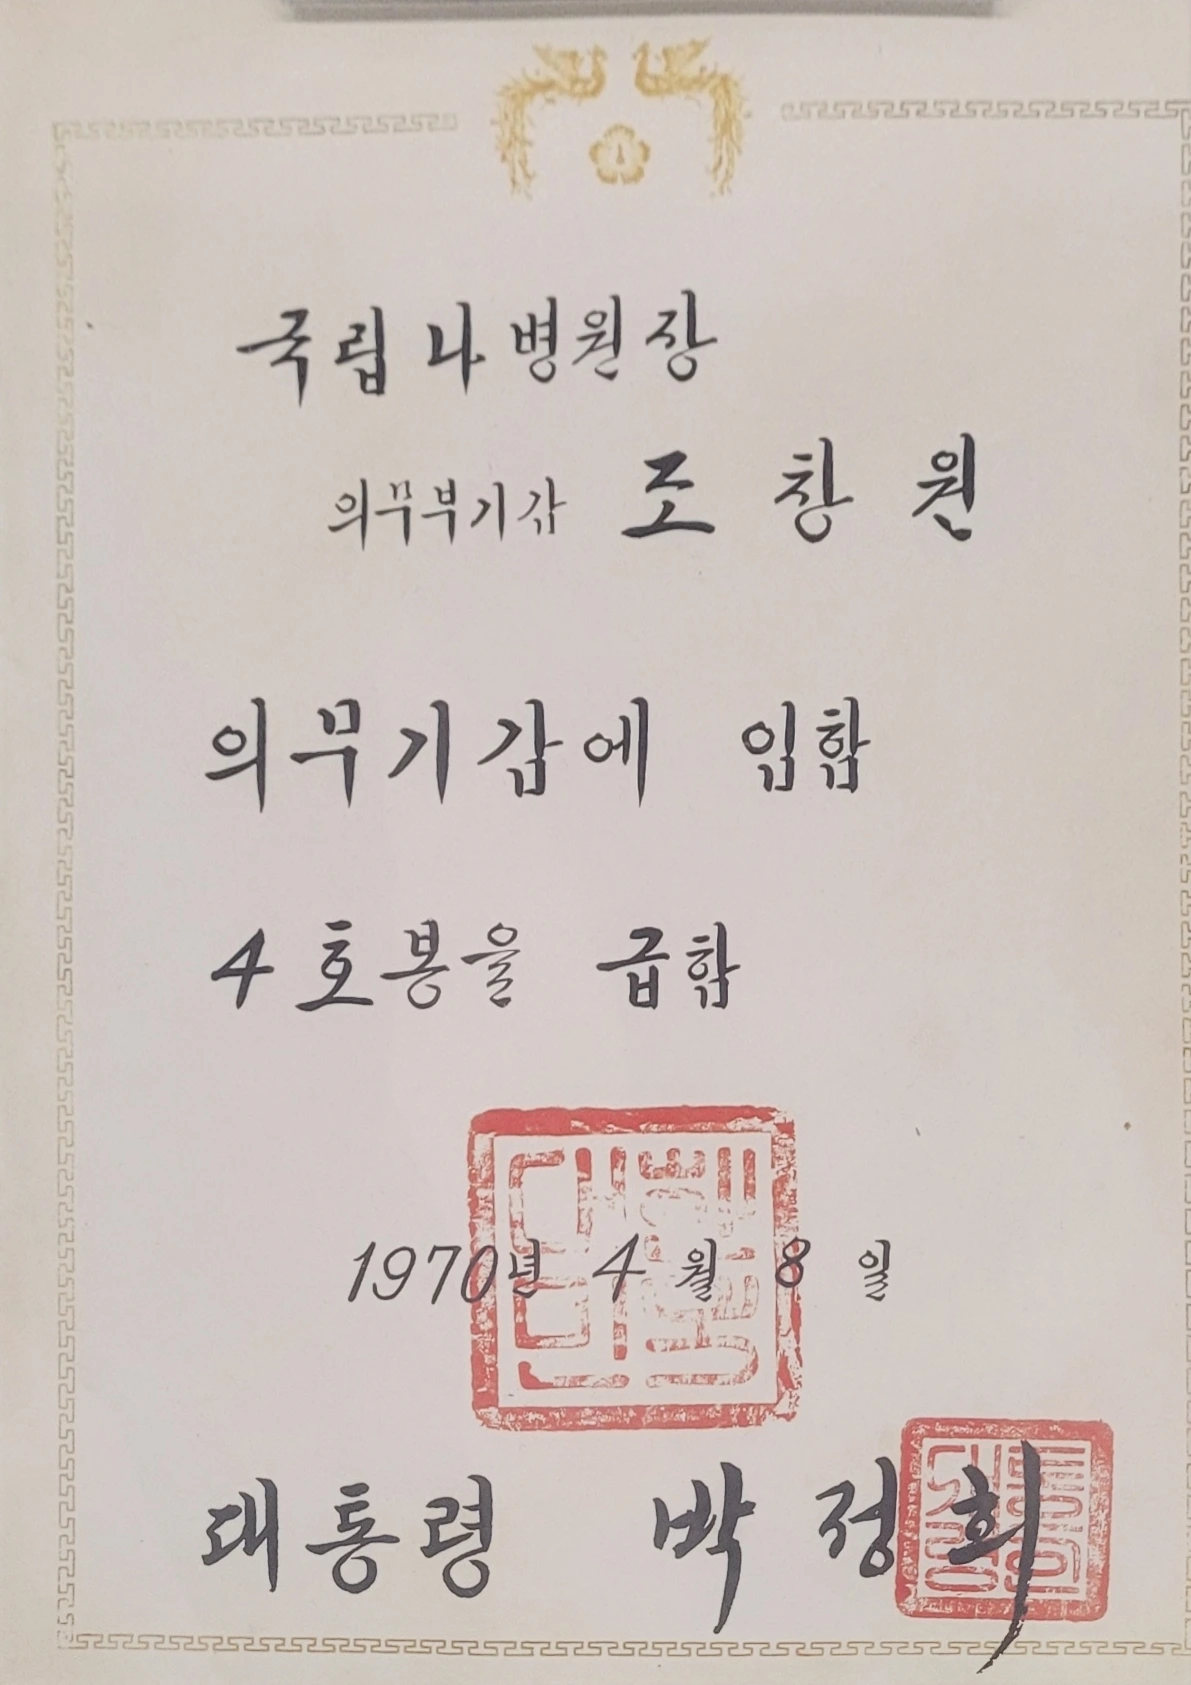 국립나병원장
의무부기감 조창원
의무기감에 임함
4호봉을 급함
1970년 4월 8일
대한민국
대통령 박정희
대통령인